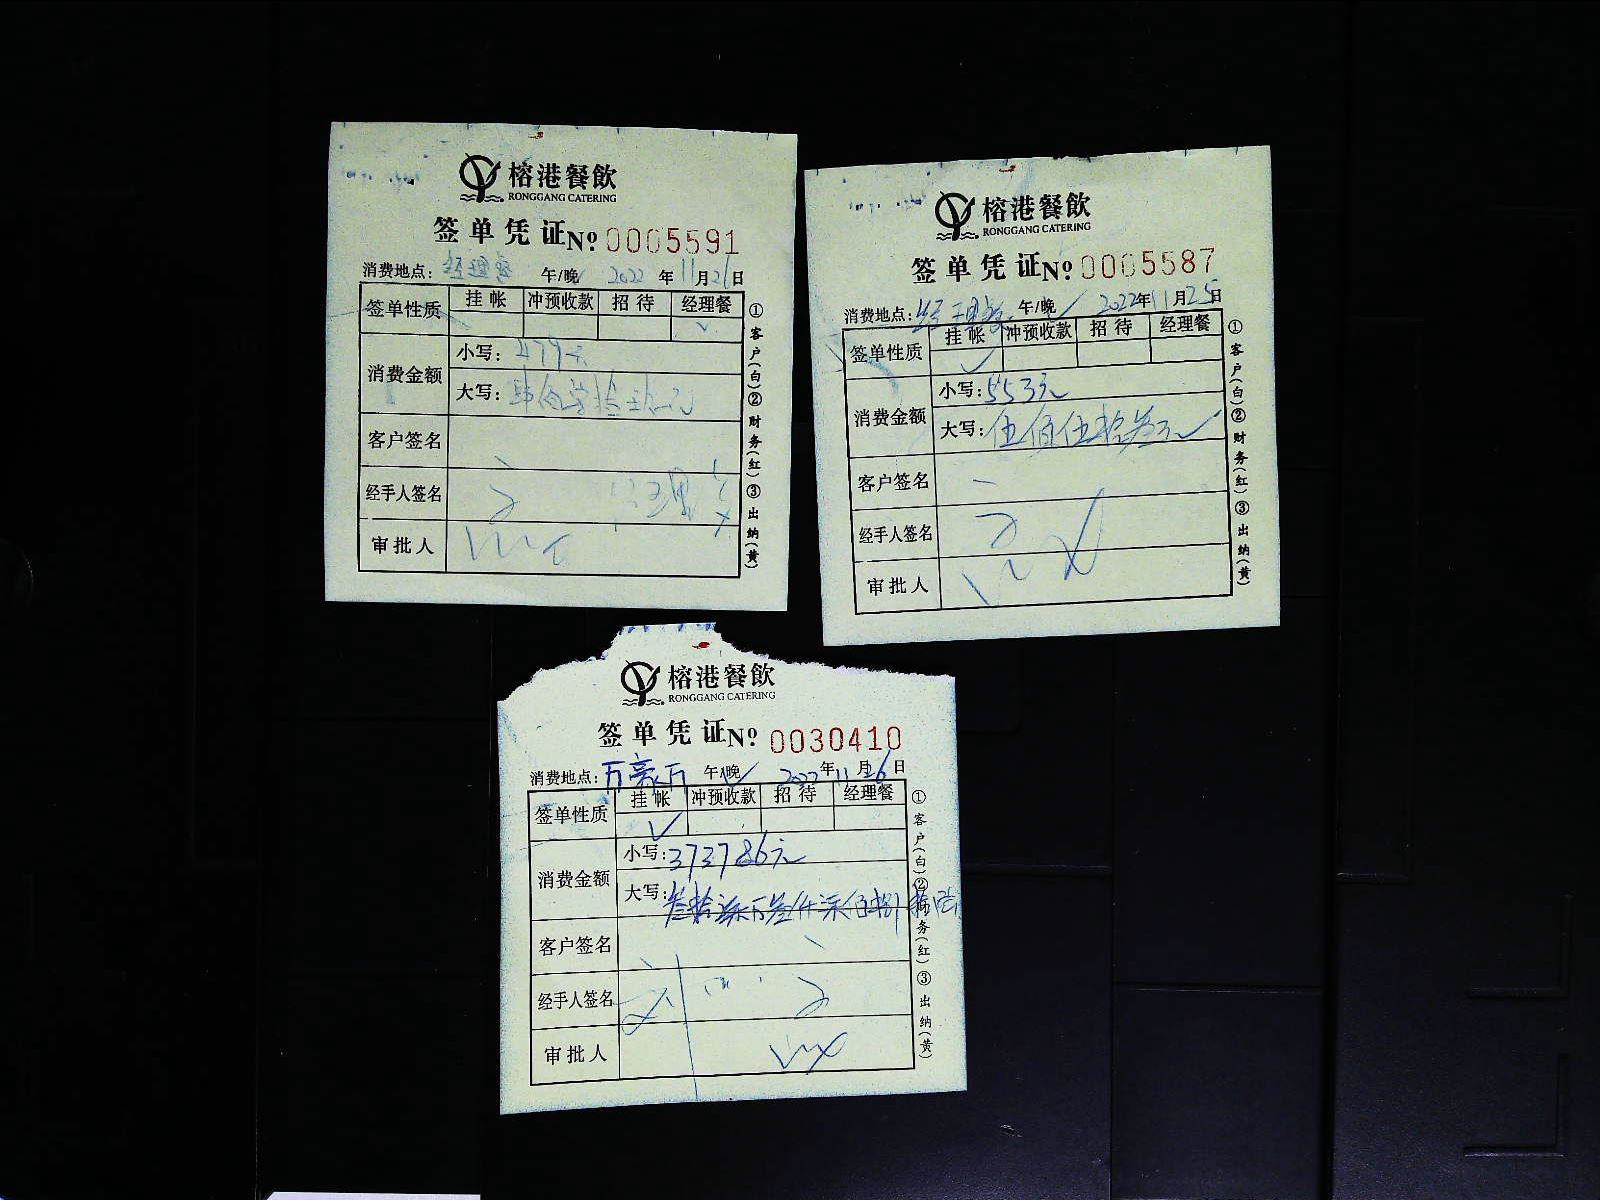 榕港餐飲
RONGGANG CATERING
签单凭证 Nº 0005591
消费地点: 经理餐 午/晚 2022年11月26日
签单性质 挂帐 冲预收款 招待 经理餐
✓
消费金额
小写: 479元
大写:
客户签名
经手人签名
审批人
①客户(白)②财务(红)③出纳(黄)
榕港餐飲
RONGGANG CATERING
签单凭证 Nº 0005587
消费地点: 经理餐 午/晚 ✓ 2022年11月25日
签单性质 挂帐 冲预收款 招待 经理餐
✓
消费金额
小写: 553元
大写: 伍佰伍拾叁元
客户签名
经手人签名
审批人
①客户(白)②财务(红)③出纳(黄)
榕港餐飲
RONGGANG CATERING
签单凭证 Nº 0030410
消费地点: 万豪 午/晚 ✓ 2022年11月26日
签单性质 挂帐 冲预收款 招待 经理餐
✓
消费金额
小写: 373786元
大写: 叁拾柒万叁仟柒佰捌拾陆
客户签名
经手人签名
审批人
①客户(白)②财务(红)③出纳(黄)